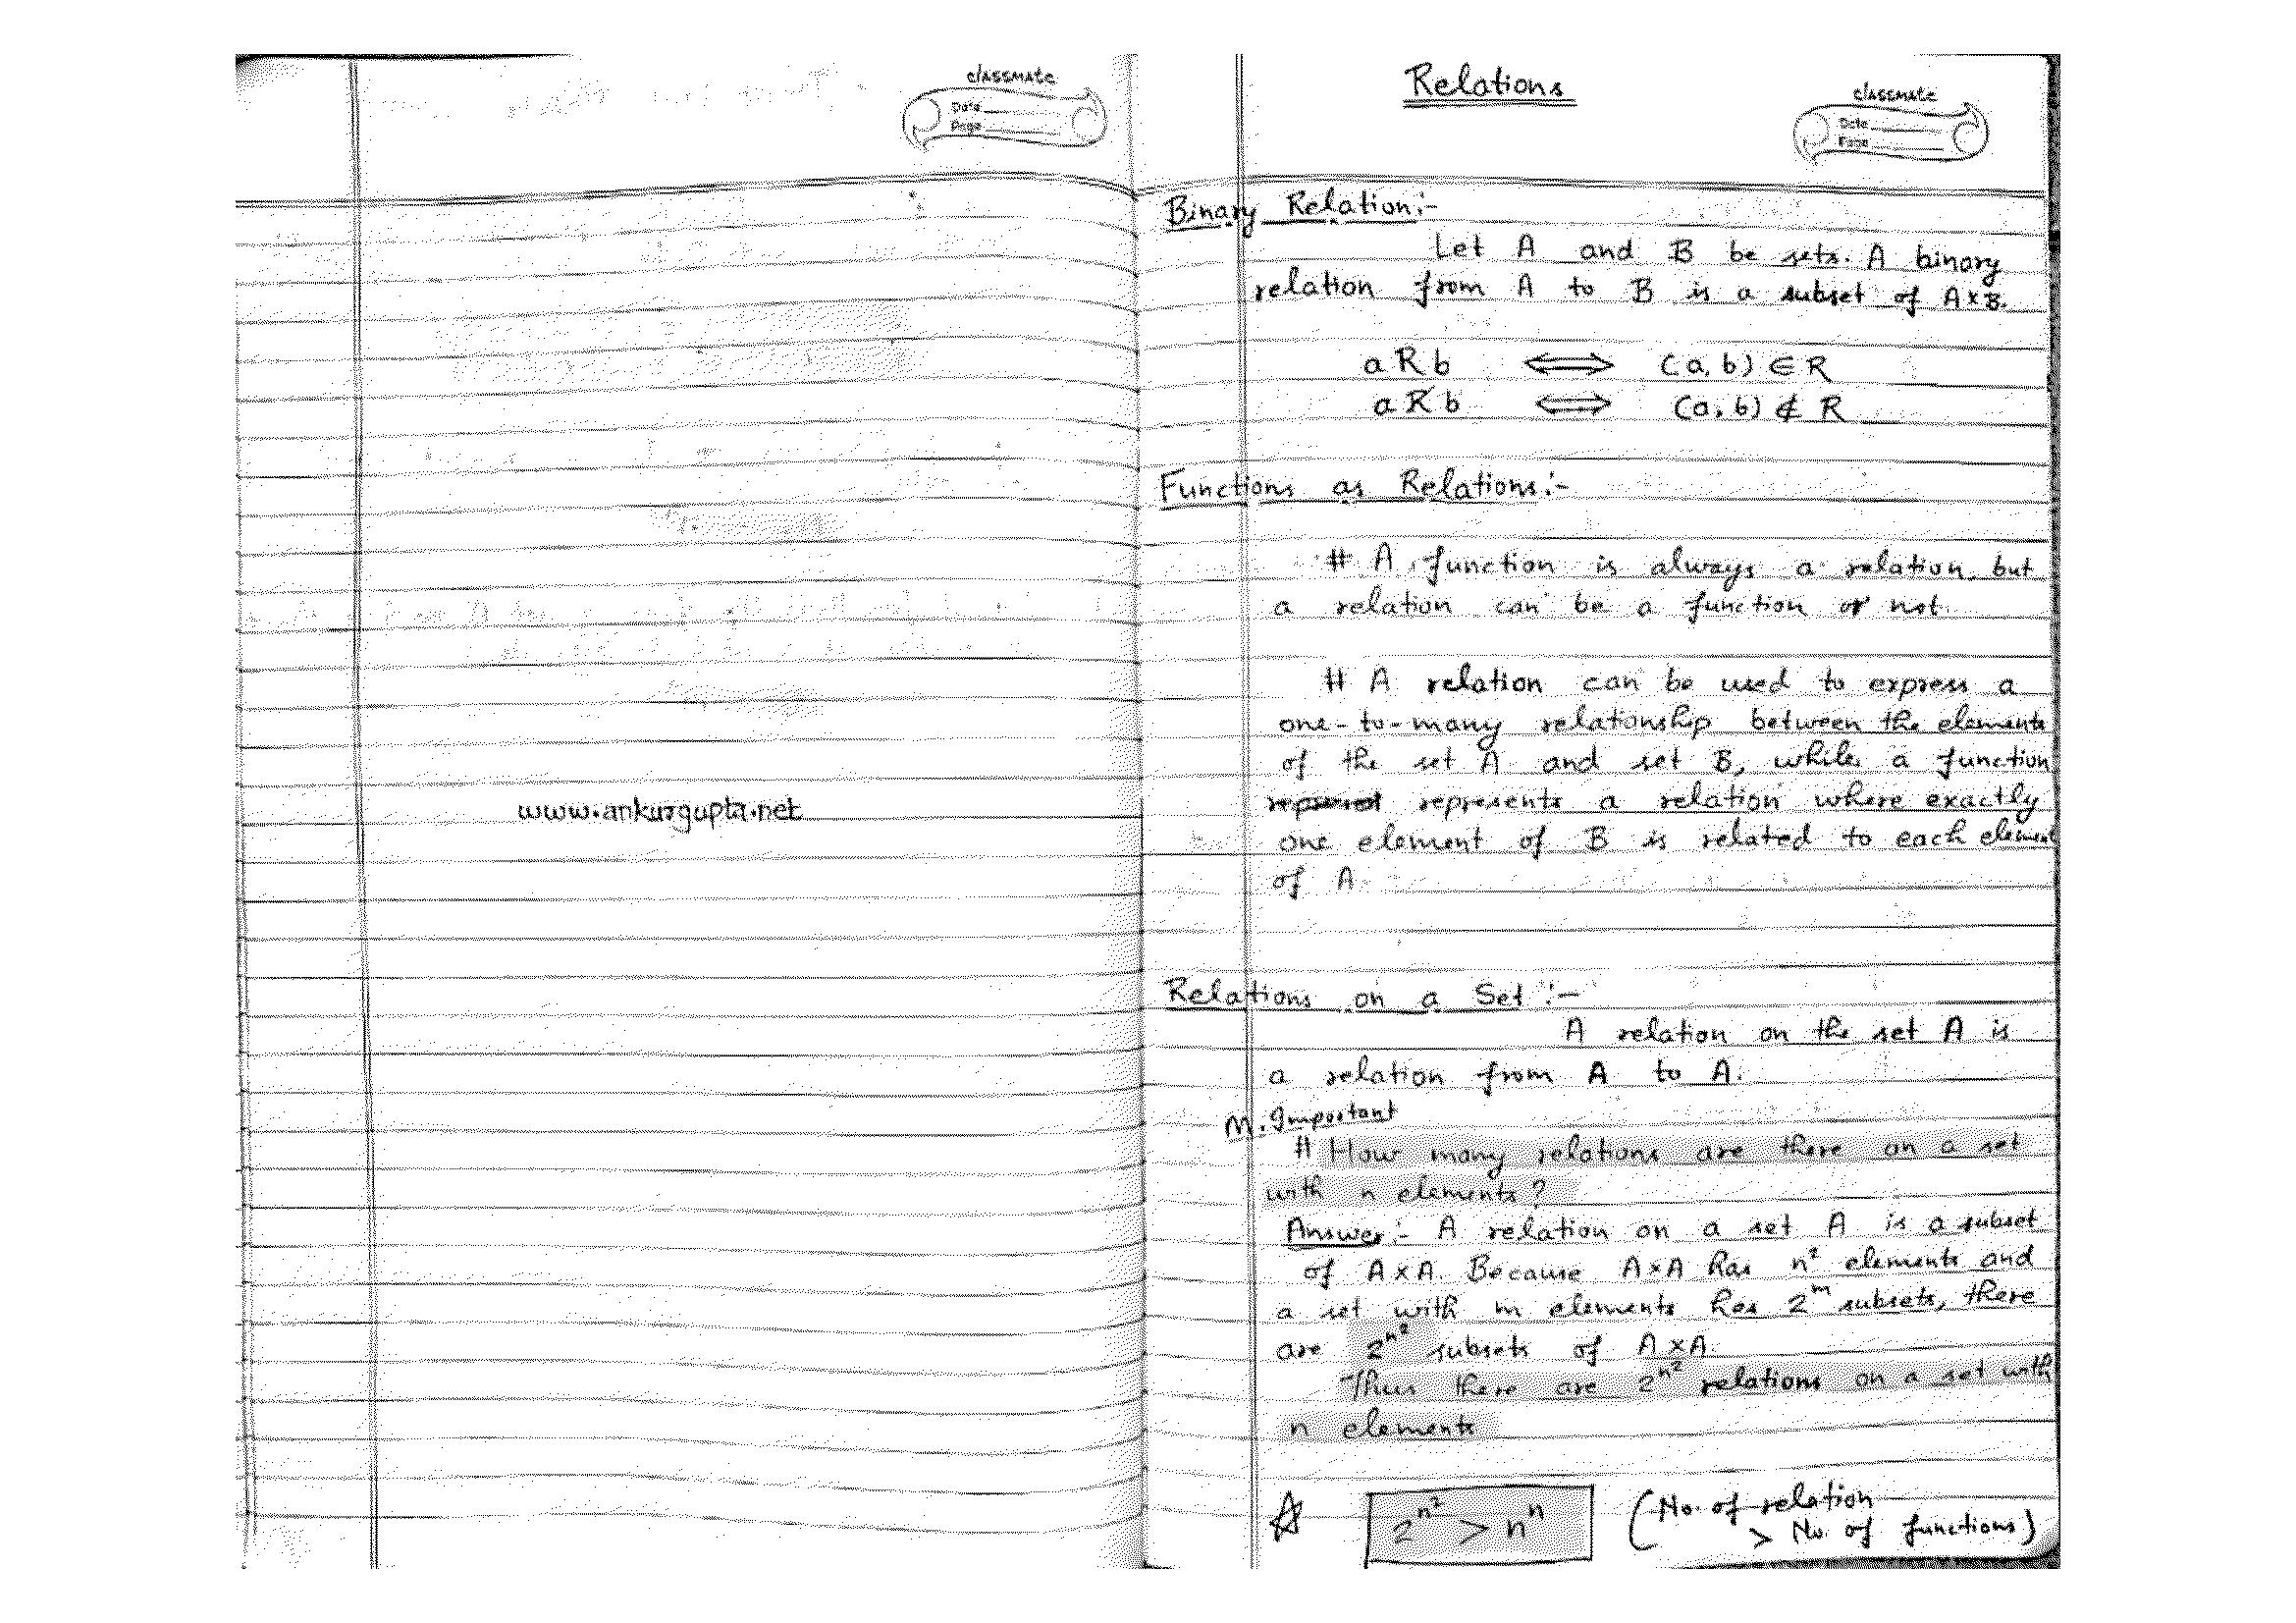 classmate
Date
Page
www.ankurgupta.net
Relations
classmate
Date
Page
Binary Relation:-
Let A and B be sets. A binary
relation from A to B is a subset of A×B.
a R b ⟺ (a, b) ∈ R
a R̸ b ⟺ (a, b) ∉ R
Functions as Relations:-
# A function is always a relation but
a relation can be a function or not.
# A relation can be used to express a
one-to-many relationship between the elements
of the set A and set B, while a function
represents a relation where exactly
one element of B is related to each element
of A.
Relations on a Set :-
A relation on the set A is
a relation from A to A.
M. Important
# How many relations are there on a set
with n elements?
Answer:- A relation on a set A is a subset
of A×A. Because A×A has n² elements and
a set with m elements has 2^m subsets, there
are 2^n² subsets of A×A.
Thus there are 2^n² relations on a set with
n elements
☆ 2^n² > n^n (No. of relation
> No. of functions)